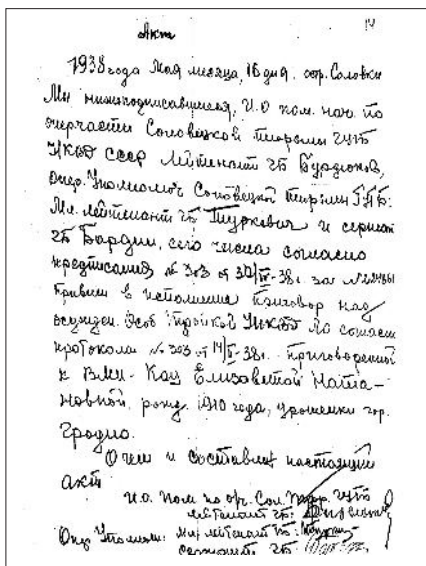 14
Акт
1938 года Мая месяца, 16 дня. гор. Соловки
Мы нижеподписавшиеся, И.О пом. нач. по
оперчасти Соловецкой тюрьмы ГУГБ
НКВД СССР Лейтенант ГБ Бурдюков,
Опер. Уполномоч Соловецкой тюрьмы ГУГБ:
Мл. лейтенант ГБ Туркевич и сержант
ГБ Бардин, сего числа согласно
предписания № 303 от /IV-38г. за №
привели в исполнение приговор над
осужден. Особ тройкой УНКВД ЛО согласн
протокола № 303 от 14/II-38г. приговоренной
к ВМН - Кац Елизаветой Ната-
новной, рожд. 1910 года, уроженки гор.
Гродно.
О чем и составлен настоящий
акт
И.О. Пом по опр. Сол. Тюр. ГУГБ
лейтенант ГБ:
Опер Уполном: мл лейтенант ГБ:
сержант ГБ